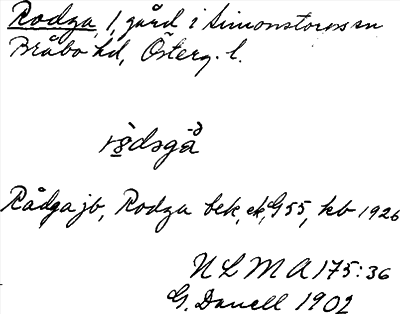 Rodga, 1, gård i Simonstorps sn
Bråbo hd, Österg. l.
Rådga jb, Rodga bek, ek, G 55, kb 1926
N L M A 175:36
G. Danell 1902